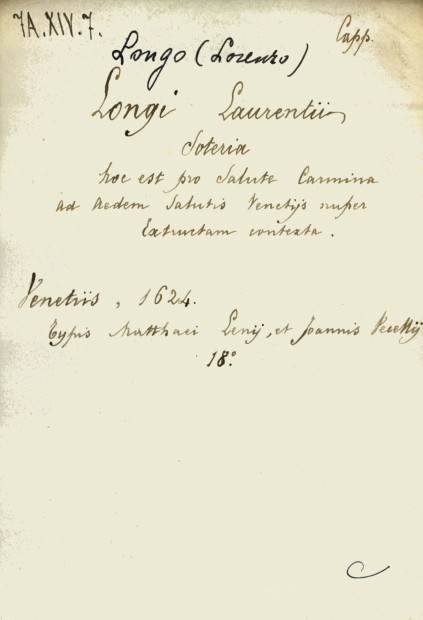 7A.XIV.7.
Capp.
Longo (Lorenzo)
Longi Laurentii
Soteria
hoc est pro Salute Carmina
ad Aedem Salutis Venetijs nuper
Extructam contexta.
Venetiis, 1624.
Typis Matthaei Lenij, et Joannis Vecellij
18º.